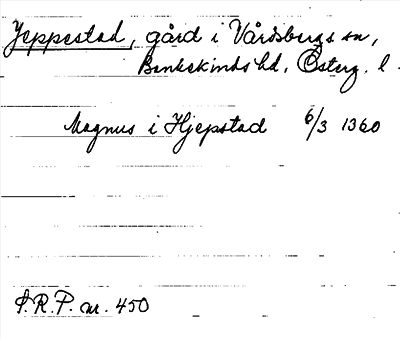 Jeppestad, gård i Vårdsbergs sn,
Bankekinds hd, Österg. l.
Magnus i Hjepstad 6/3 1360
S.R.P. nr. 450